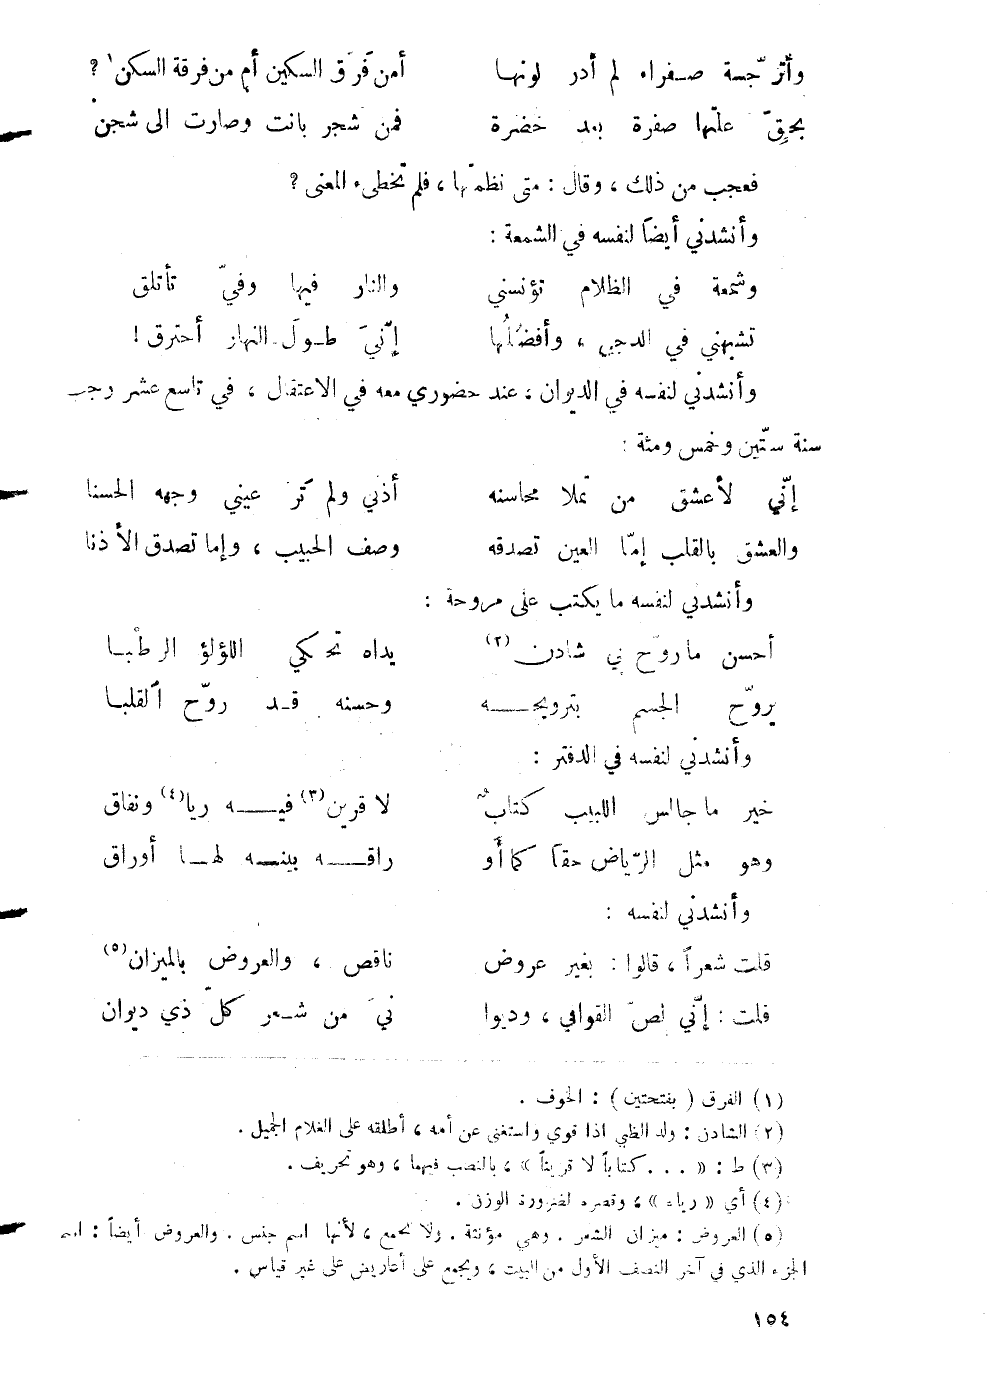 وأترجّسة صفراء لم أدر لونها أمن فَرَق السكين أم من فرقة السكن١ ?
بحقّ علتها صفرة بعد خضرة فمن شجر بانت وصارت الى شجن
فعجب من ذلك ، وقال : متى نظمتَها ، فلم تخطىء المعنى ?
وأنشدني أيضاً لنفسه في الشمعة :
وشمعة في الظلام تؤنسني والنار فيها وفيّ تأتلق
تشبهني في الدجى ، وأفضُلُها إنّنيَ طول النهار أحترق !
وأنشدني لنفسه في الديوان ، عند حضوري معه في الاعتقال ، في تاسع عشر رجب
سنة ستّين وخمس ومئة :
إنّي لأعشق من تملا محاسنه أذني ولم تَرَ عيني وجهه الحسنا
والعشق بالقلب إمّا العين تصدقه وصف الحبيب ، وإما تصدق الأذنا
وأنشدني لنفسه ما يكتب على مروحة :
أحسن ما روّح بي شادن (٢) يداه تحكي اللؤلؤ الرطْبا
يروّح الجسم بترويحه وحسنه قد روّح القلبا
وأنشدني لنفسه في الدفتر :
خير ما جالس اللبيب كتابٌ لا قرين(٣) فيه ريا(٤) ونفاق
وهو مثل الرّياض حقاً كما أَو راقه بينه لها أوراق
وأنشدني لنفسه :
قلت شعراً ، قالوا : بغير عروض ناقص ، والعروض بالميزان(٥)
قلت : إنّني لصّ القوافي ، وديوا نيَ من شعر كلّ ذي ديوان
(١) الفرق ( بفتحتين ) : الخوف .
(٢) الشادن : ولد الظبي اذا قوي واستغنى عن أمه ، أطلقه على الغلام الجميل .
(٣) ط : « ... كتاباً لا قريناً » ، بالنصب فيهما ، وهو تحريف .
(٤) أي « رياء » ، وقصره لضرورة الوزن .
(٥) العروض : ميزان الشعر . وهي مؤنثة . ولا تجمع ، لأنها اسم جنس . والعروض أيضاً : اسم
الجزء الذي في آخر النصف الأول من البيت ، ويجمع على أعاريض على غير قياس .
١٥٤